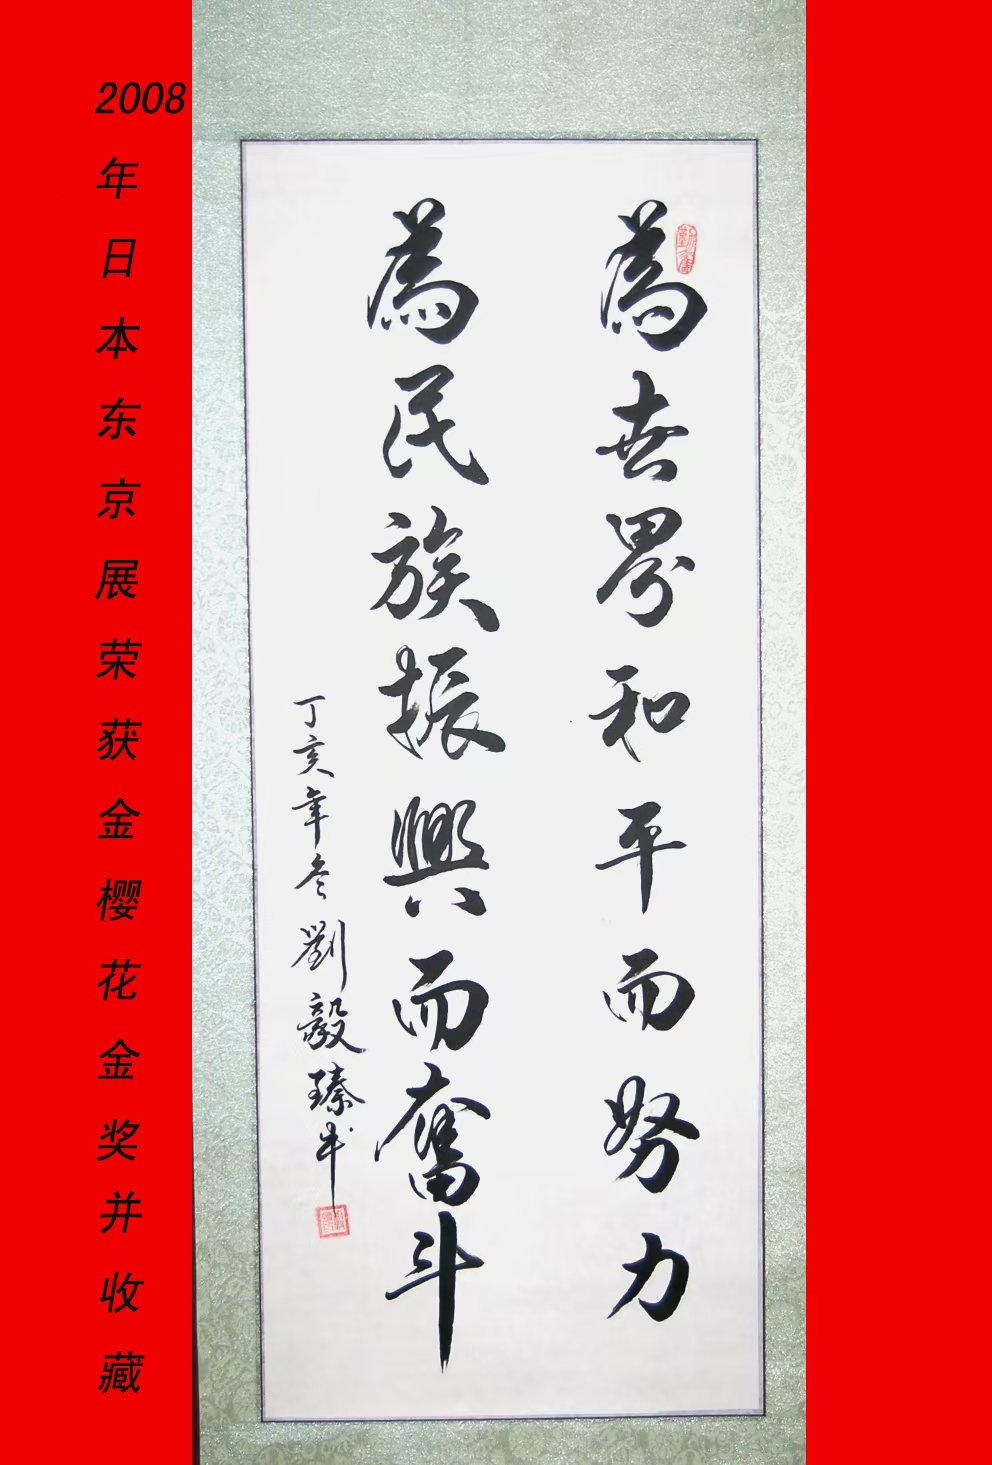 2008年日本东京展荣获金樱花金奖并收藏
為世界和平而努力
為民族振興而奮斗
丁亥年冬劉毅臻书